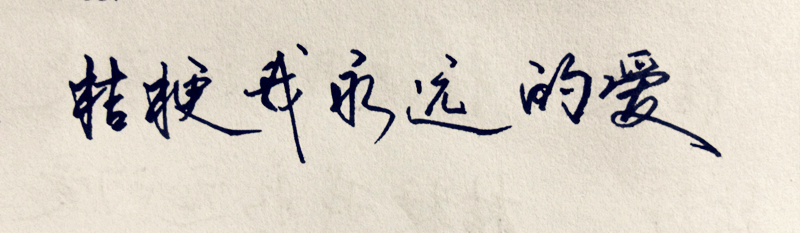 桔梗我永远的爱